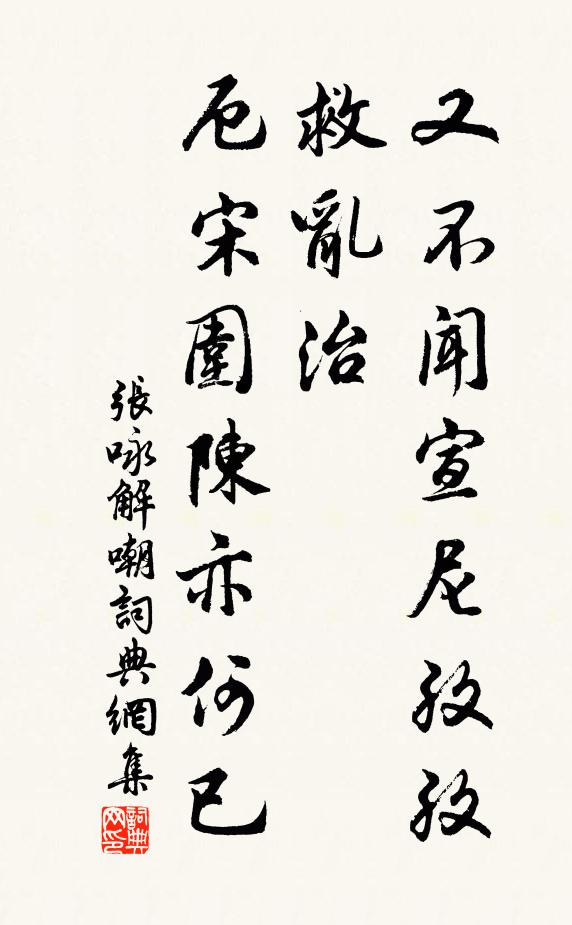 又不聞宣尼孜孜
救亂治
厄宋圍陳亦何已
張咏解嘲詞典網集
詞典网印